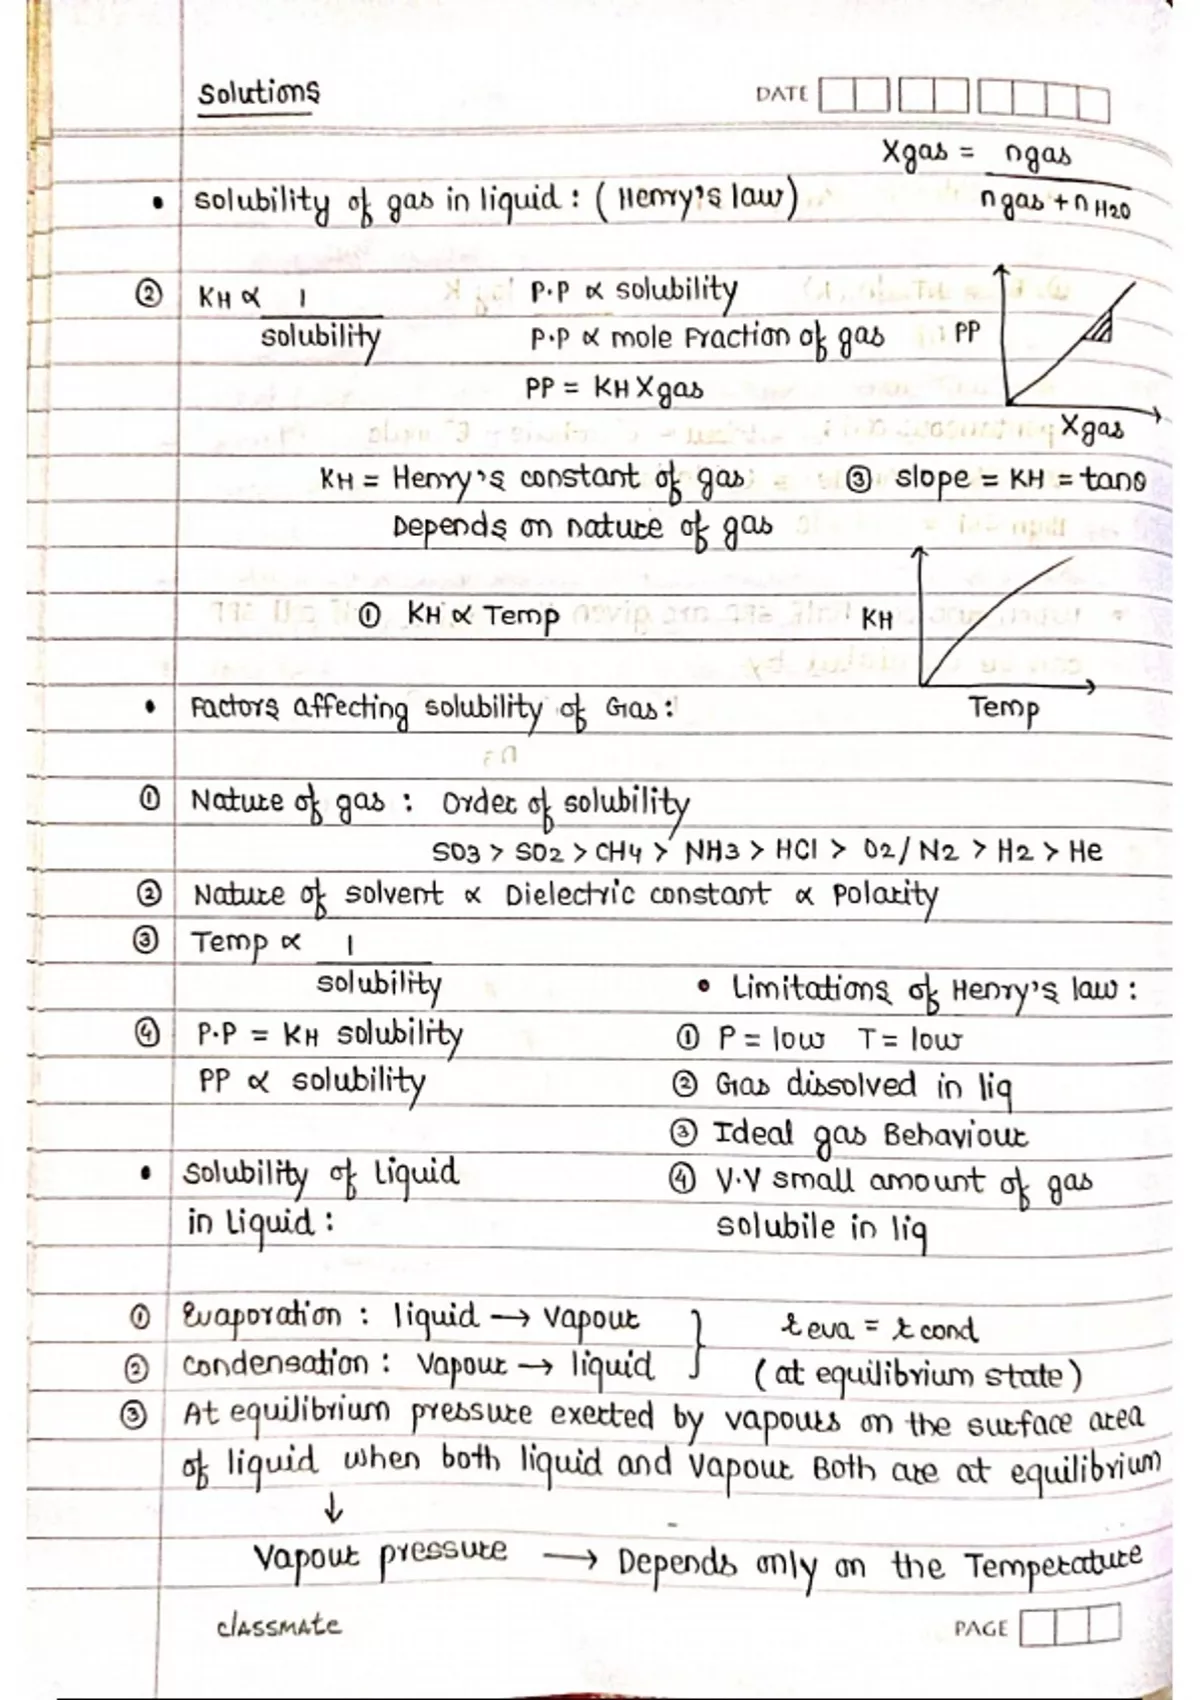 Solutions
DATE
Xgas = ngas
ngas + nH2O
• Solubility of gas in liquid : ( Henry's law )
② KH ∝ 1
solubility
P.P ∝ solubility
P.P ∝ mole Fraction of gas
PP = KH Xgas
PP
Xgas
KH = Henry's constant of gas
Depends on nature of gas
③ slope = KH = tanθ
① KH ∝ Temp
KH
Temp
• Factors affecting solubility of Gas :
① Nature of gas : Order of solubility
SO3 > SO2 > CH4 > NH3 > HCl > O2/N2 > H2 > He
② Nature of solvent ∝ Dielectric constant ∝ Polarity
③ Temp ∝ 1
solubility
④ P.P = KH solubility
PP ∝ solubility
• Limitations of Henry's law :
① P = low T = low
② Gas dissolved in liq
③ Ideal gas Behaviour
④ V.V small amount of gas
solubile in liq
• Solubility of Liquid
in Liquid :
① Evaporation : liquid → Vapour
② Condensation : Vapour → liquid
r eva = r cond
( at equilibrium state )
③ At equilibrium pressure exerted by vapours on the surface area
of liquid when both liquid and Vapour Both are at equilibrium
↓
Vapour pressure → Depends only on the Temperature
clASSMAte
PAGE